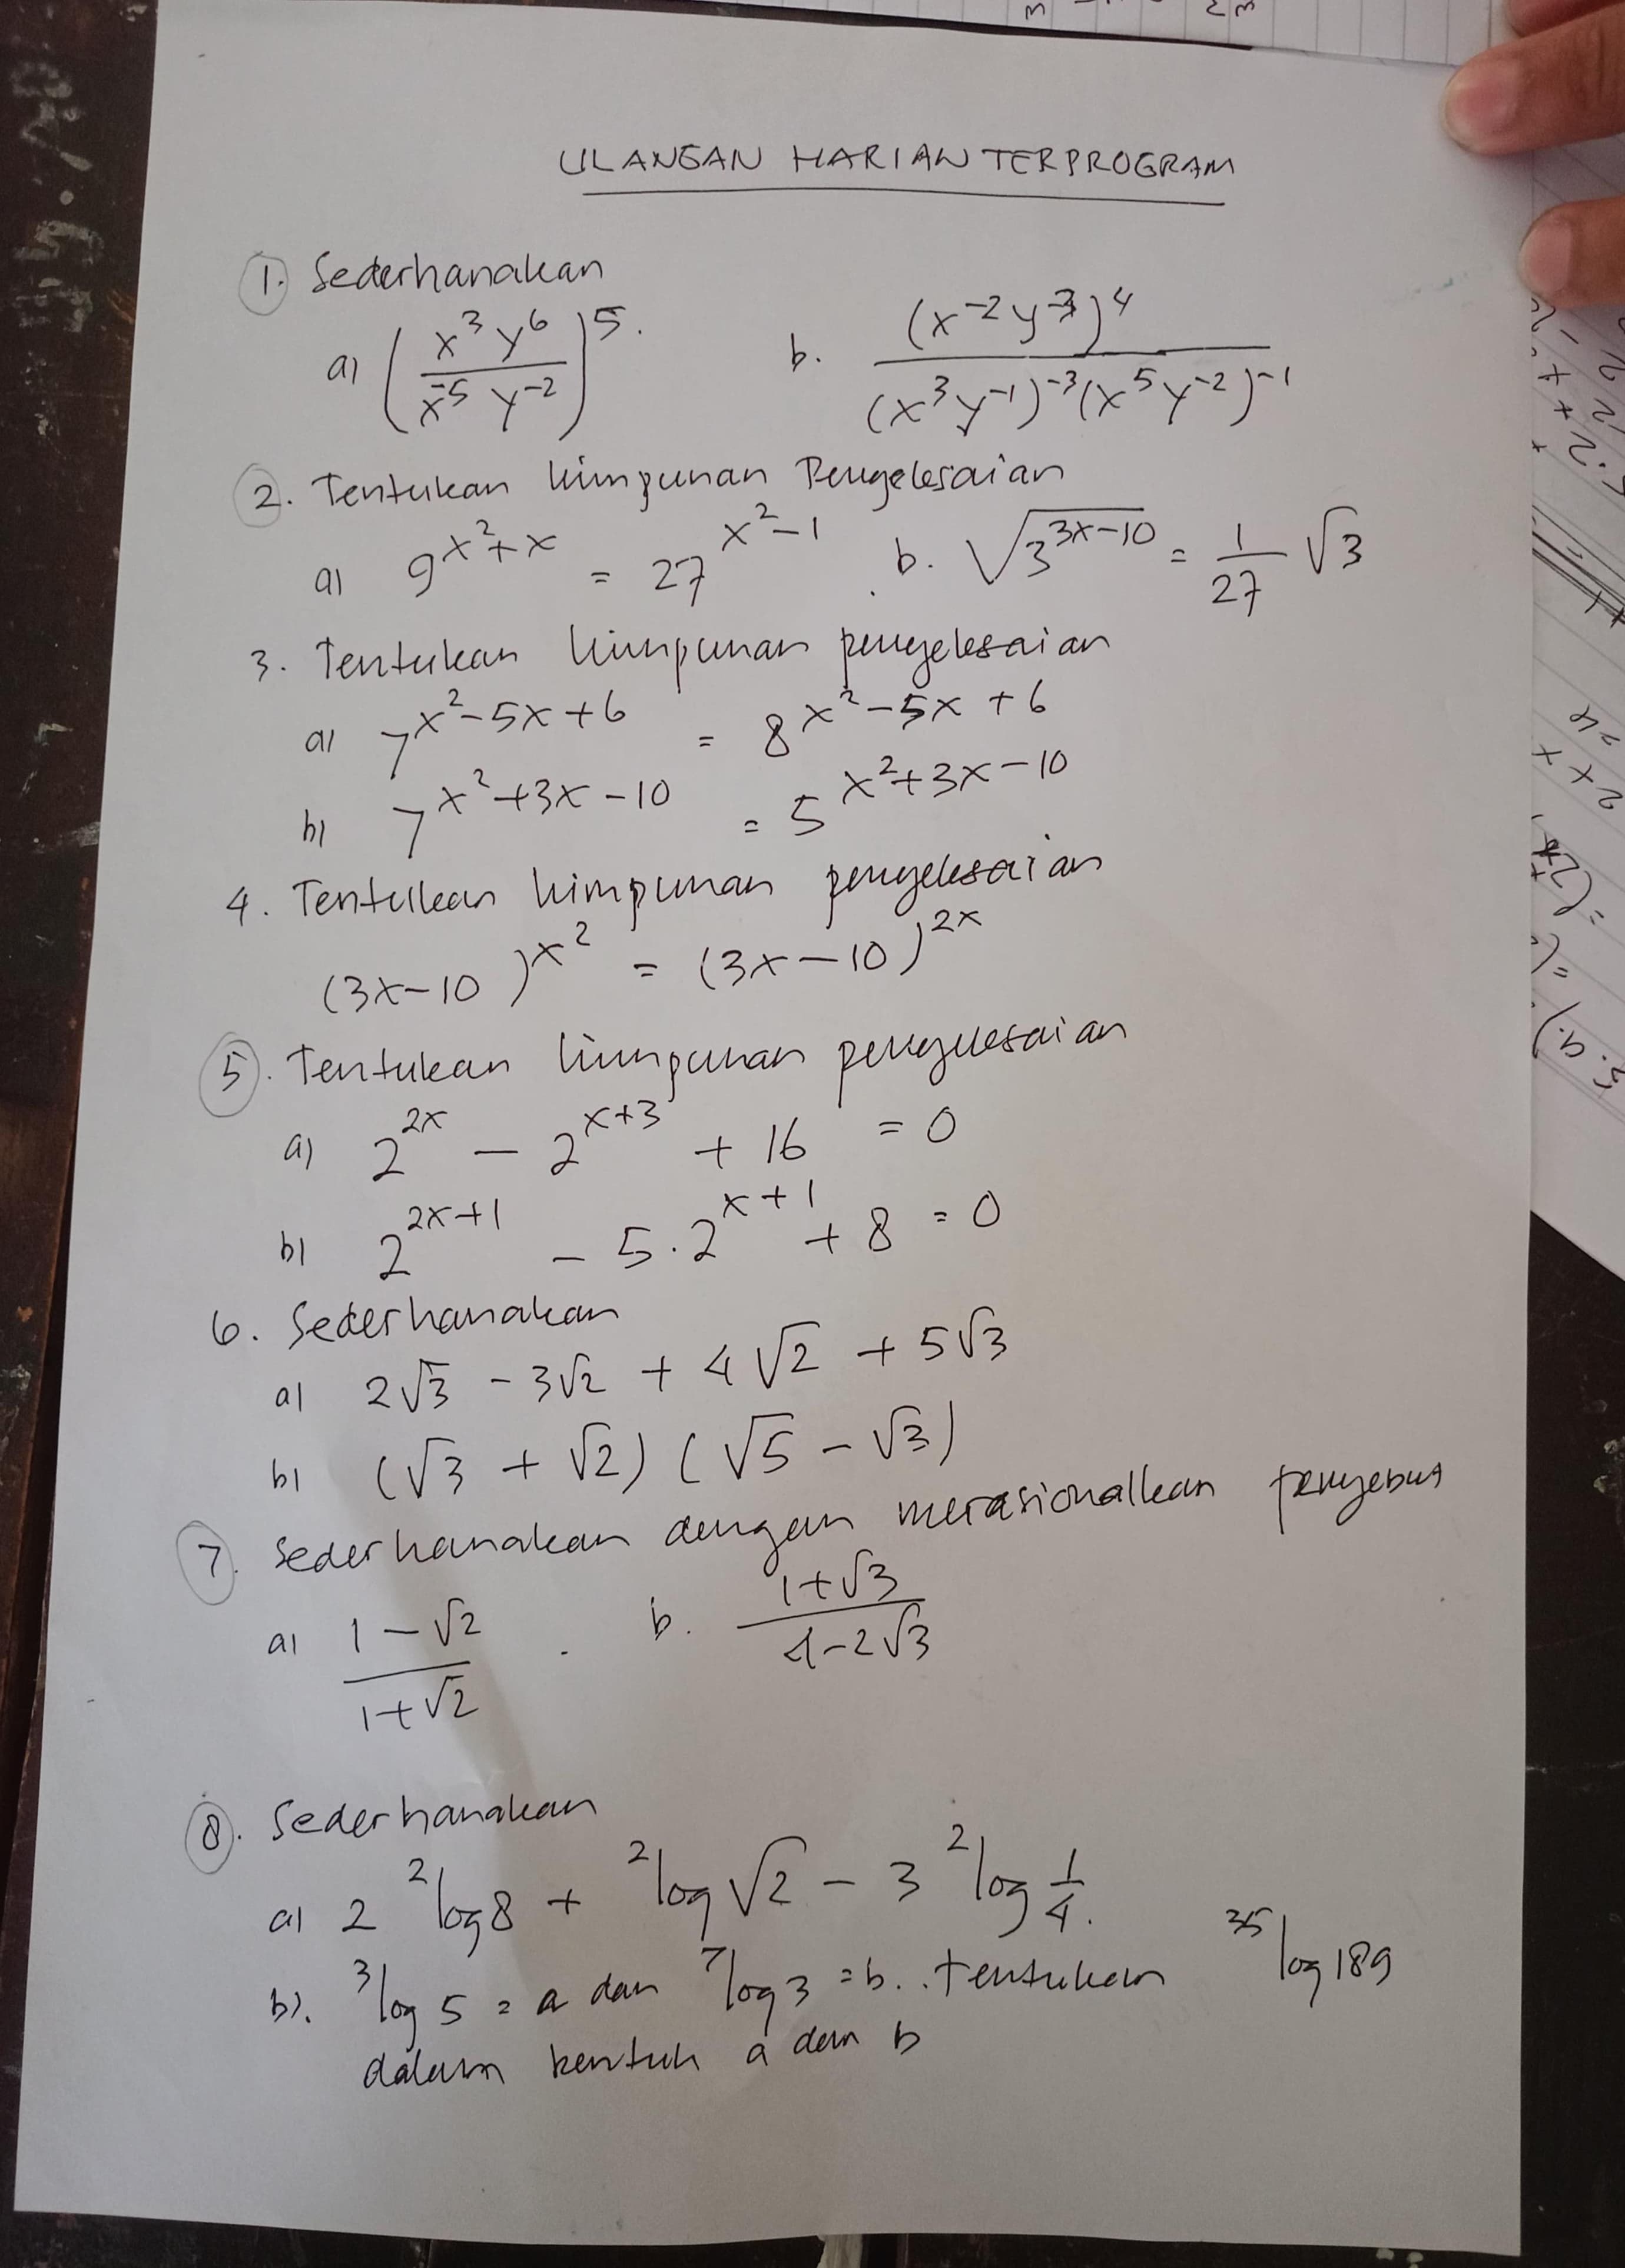 ULANGAN HARIAN TERPROGRAM
1. Sederhanakan
a) (x³y⁶ / x⁻⁵ y⁻²)⁵. b. (x⁻²y⁻³)⁴ / (x³y⁻¹)⁻³(x⁵y⁻²)⁻¹
2. Tentukan himpunan Pengelesaian
a) 9^(x²+x) = 27^(x²-1) . b. √(3^(3x-10)) = 1/27 √3
3. Tentukan himpunan pengelesaian
a) 7^(x²-5x+6) = 8^(x²-5x+6)
b) 7^(x²+3x-10) = 5^(x²+3x-10)
4. Tentukan himpunan pengelesaian
(3x-10)^(x²) = (3x-10)^(2x)
5. Tentukan himpunan pengelesaian
a) 2^(2x) - 2^(x+3) + 16 = 0
b) 2^(2x+1) - 5.2^(x+1) + 8 = 0
6. Sederhanakan
a) 2√3 - 3√2 + 4√2 + 5√3
b) (√3 + √2) (√5 - √3)
7. Sederhanakan dengan merasionalkan penyebut
a) (1 - √2) / (1+√2) . b. (1+√3) / (4-2√3)
8. Sederhanakan
a) 2 ²log 8 + ²log √2 - 3 ²log 1/4.
b). ³log 5 = a dan ⁷log 3 = b. . tentukan ³⁵log 189
dalam bentuk a dan b